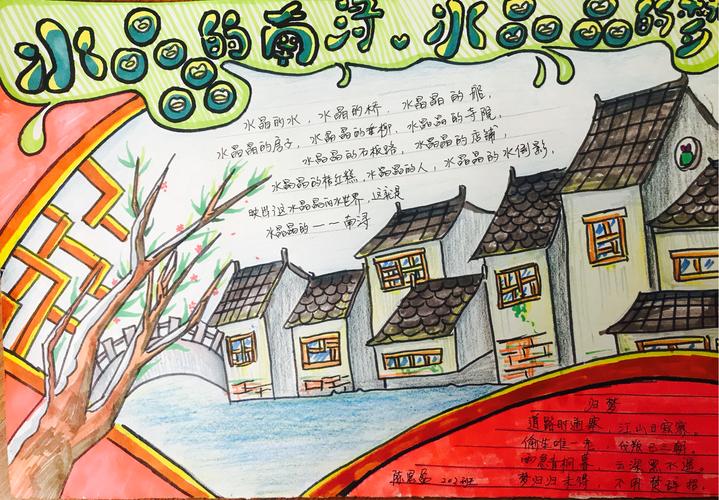 水晶晶的南浔。水晶晶的梦
水晶的水，水晶的桥，水晶晶的船，
水晶晶的房子，水晶晶的垂柳，水晶晶的寺院，
水晶晶的石板路，水晶晶的店铺，
水晶晶的桔红糕，水晶晶的人，水晶晶的水倒影，
映出了这水晶晶的水世界，这就是
水晶晶的——南浔
归梦
道路时通塞，江山日寂寥。
偷生唯一老，伐叛已三朝。
雨急青枫暮，云深黑水遥。
梦归归未得，不用楚辞招。
陈 202班